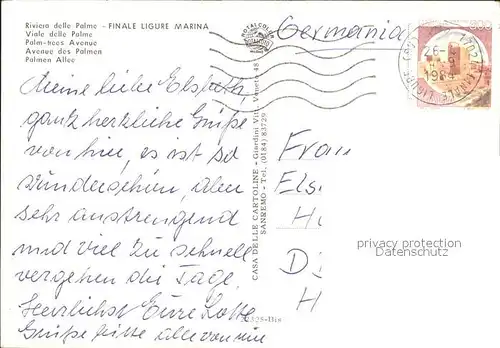 Riviera delle Palme - FINALE LIGURE MARINA
Viale delle Palme
Palm-trees Avenue
Avenue des Palmen
Palmen Allee
Germania
Meine liebe Elsbeth,
ganz herzliche Grüße
von hier, es ist so
wunderschön, aber
sehr anstrengend
und viel zu schnell
vergehen die Tage.
Herzlichst Eure Lotte
Grüße bitte alle von mir
CASA DELLE CARTOLINE - Giardini Vitt. Veneto 48
SANREMO - Tel. (0184) 83729
Frau
Els
H
D
H
privacy protection
Datenschutz